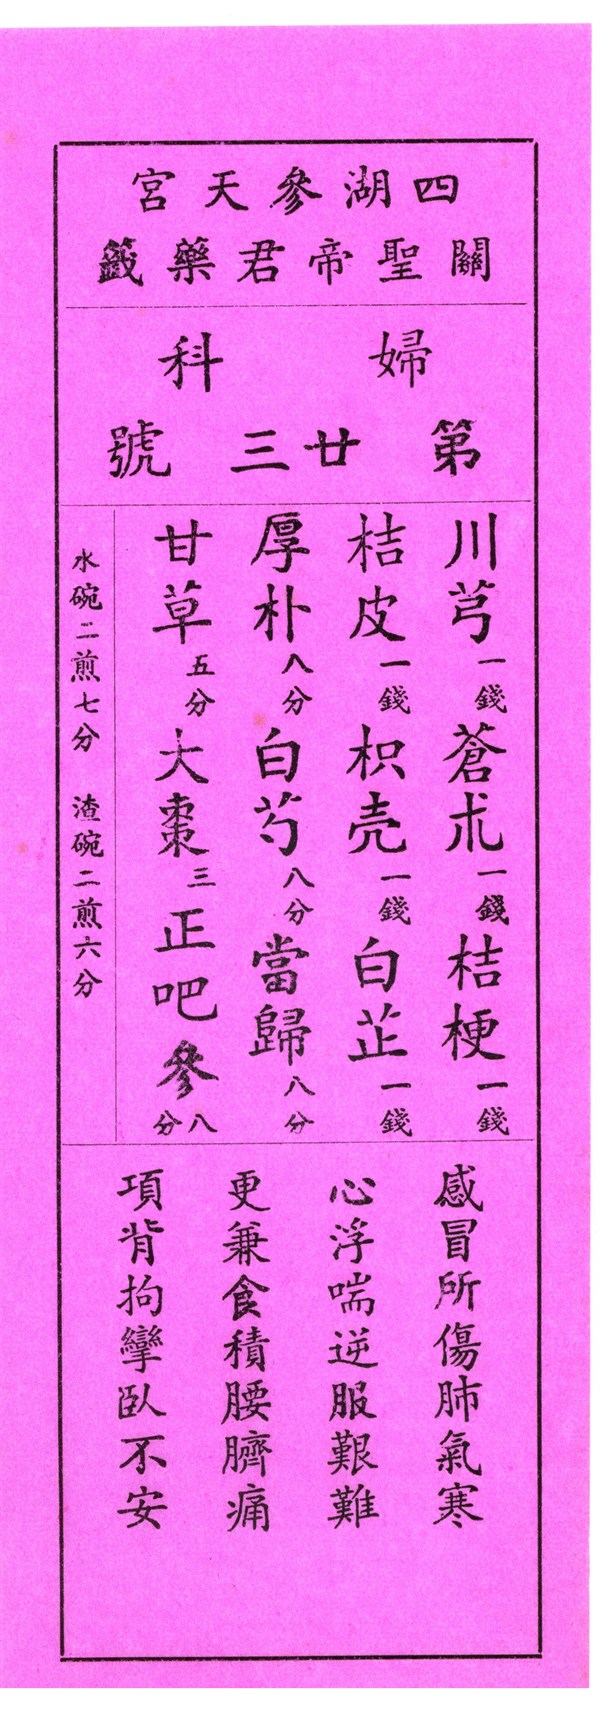 四湖參天宮
關聖帝君藥籤
婦科
第廿三號
川芎一錢蒼朮一錢桔梗一錢
桔皮一錢枳壳一錢白芷一錢
厚朴八分白芍八分當歸八分
甘草五分大棗三正吧參八分
水碗二煎七分 渣碗二煎六分
感冒所傷肺氣寒
心浮喘逆服艱難
更兼食積腰臍痛
項背拘攣臥不安